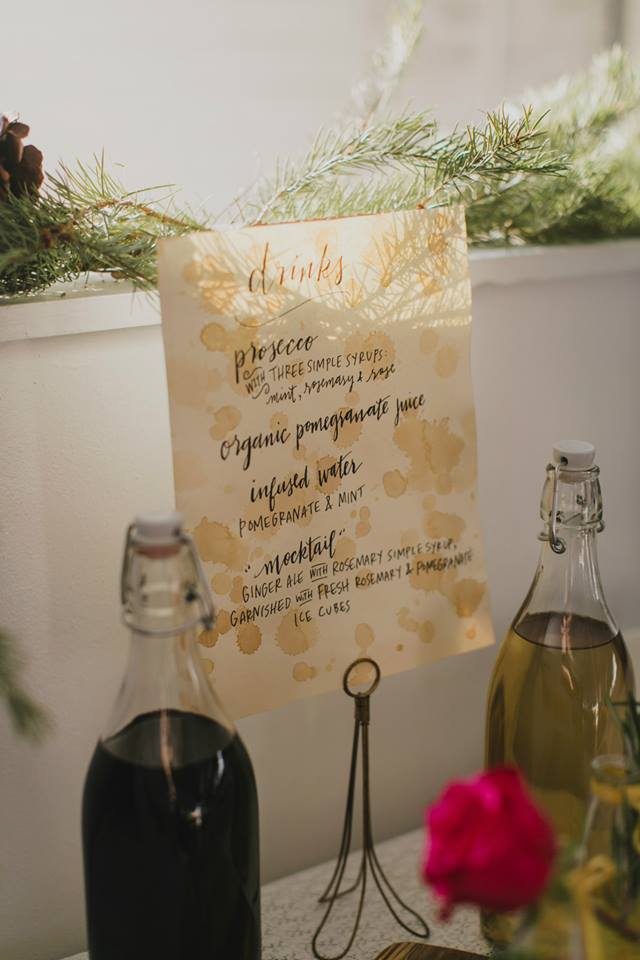 drinks
prosecco
with THREE SIMPLE SYRUPS:
mint, rosemary & rose
organic pomegranate juice
infused water
POMEGRANATE & MINT
"mocktail"
GINGER ALE with ROSEMARY SIMPLE SYRUP,
GARNISHED with FRESH ROSEMARY & POMEGRANATE
ICE CUBES